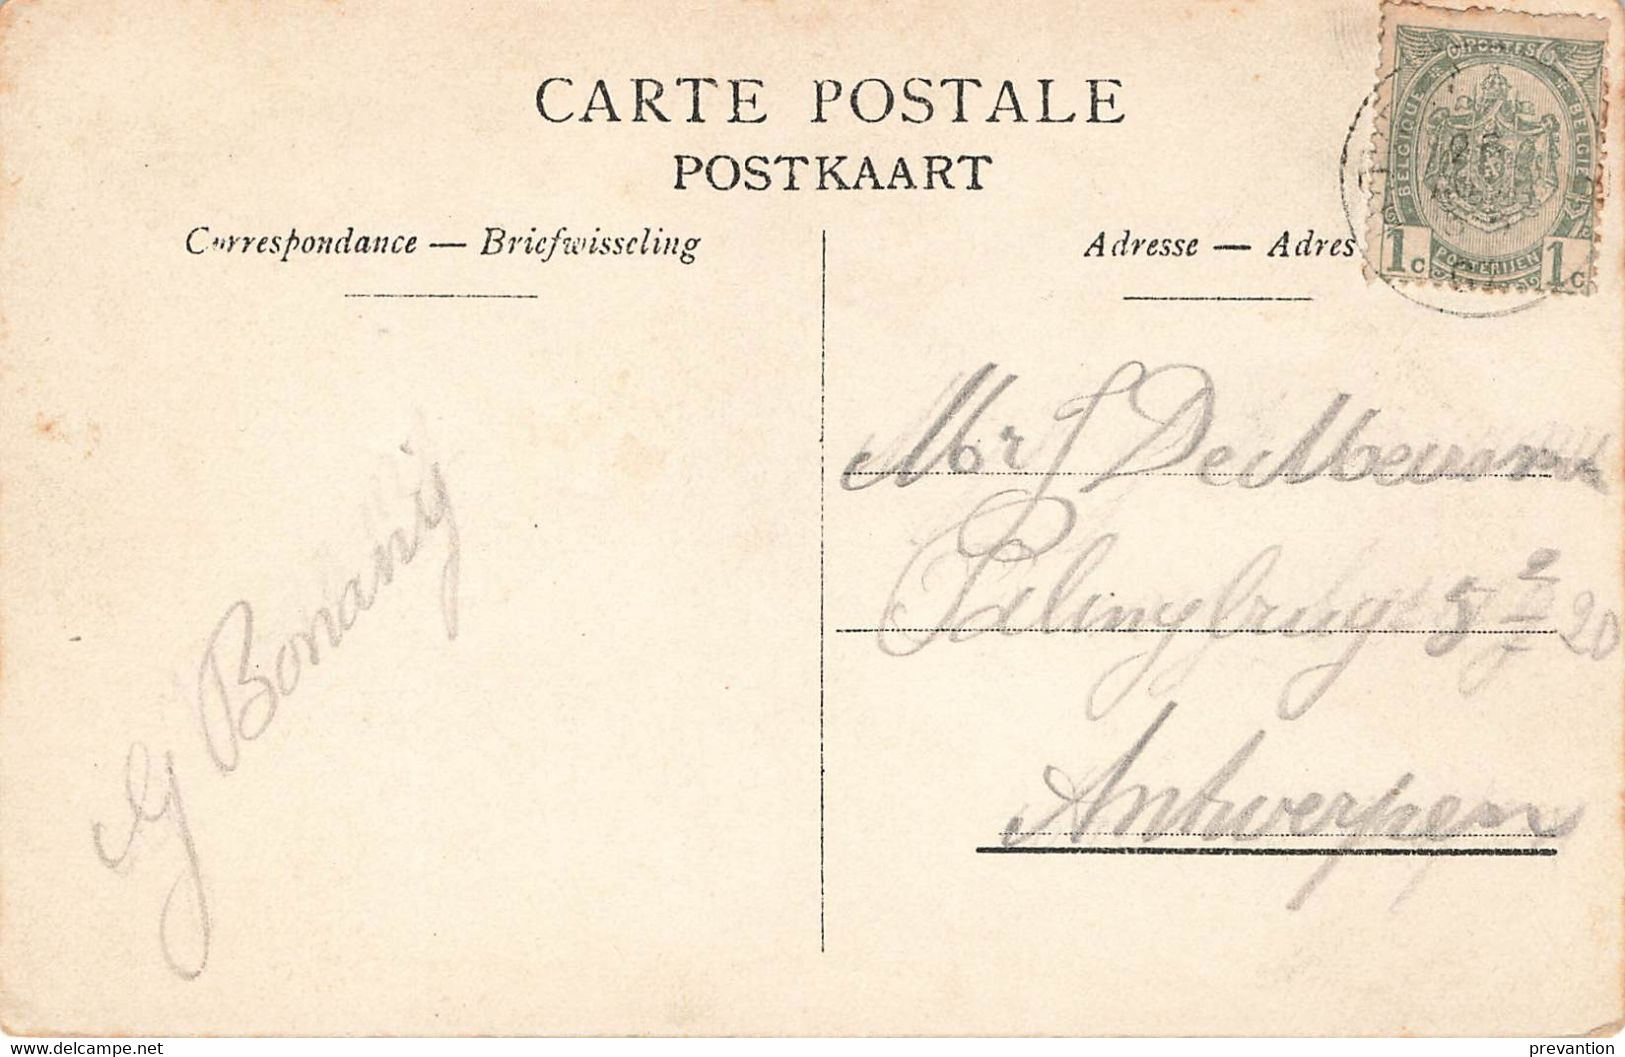 CARTE POSTALE
POSTKAART
Correspondance — Briefwisseling
Adresse — Adres
POSTES
BELGIQUE
BELGIË
1c
POSTERIJEN
1c
Mr J De
Palingbrug 5
20
Antwerpen
G Bonanij
www.delcampe.net
prevantion